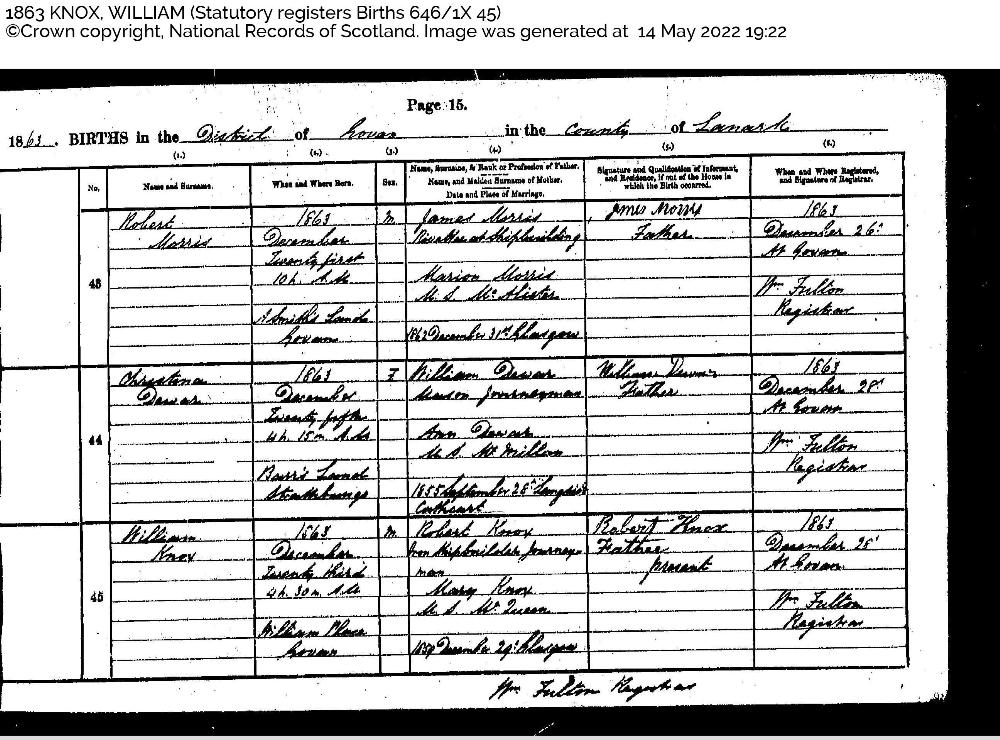 1863 KNOX, WILLIAM (Statutory registers Births 646/1X 45)
©Crown copyright, National Records of Scotland. Image was generated at 14 May 2022 19:22
Page 15.
1863. BIRTHS in the District of Govan in the County of Lanark
(1.) (2.) (3.) (4.) (5.) (6.)
No.
Name and Surname.
When and Where Born.
Sex.
Name, Surname, & Rank or Profession of Father.
Name, and Maiden Surname of Mother.
Date and Place of Marriage.
Signature and Qualification of Informant,
and Residence, if out of the House in
which the Birth occurred.
When and Where Registered,
and Signature of Registrar.
43
Robert
Morris
1863
December
Twenty first
10 h. A M
Smith's Land
Govan
M
James Morris
at Shipbuilding
Marion Morris
M. S. McAlister
1862 December 31st Glasgow
James Morris
Father
1863
December 26th
At Govan
Wm Fulton
Registrar
44
Christina
Dewar
1863
December
Twenty fifth
4 h. 15 m A M
Land
F
William Dewar
Mason Journeyman
Ann Dewar
M. S. McMillan
1855 September 28th
Cathcart
William Dewar
Father
1863
December 28th
At Govan
Wm Fulton
Registrar
45
William
Knox
1863
December
Twenty third
4 h. 30 m. A M
William Place
Govan
M
Robert Knox
Iron Shipbuilder Journey-
man
Mary Knox
M. S. McQueen
December 29th Glasgow
Robert Knox
Father
present
1863
December 28th
At Govan
Wm Fulton
Registrar
Wm Fulton Registrar